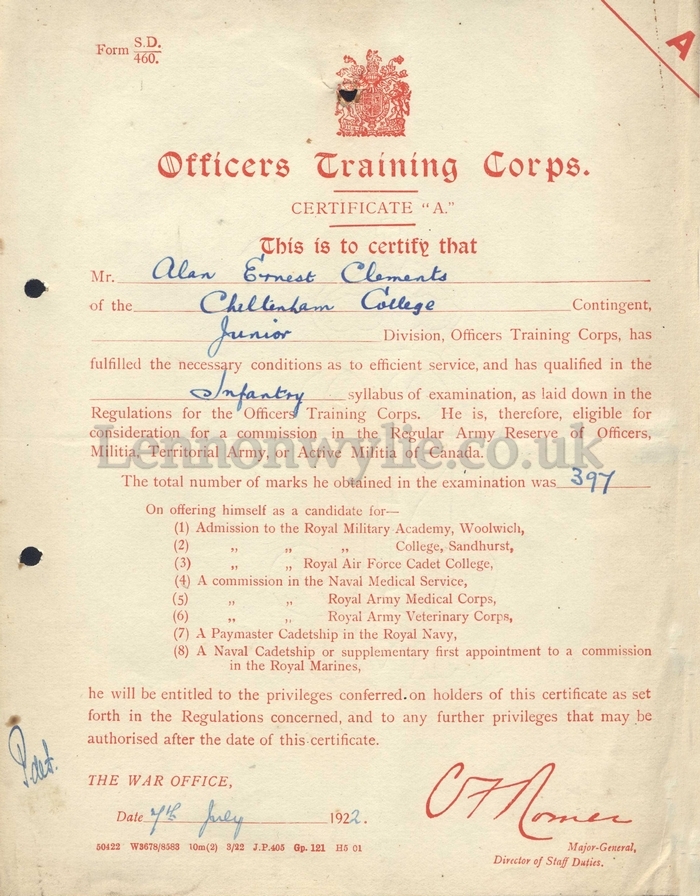 Form S.D. 460.
A
Officers Training Corps.
CERTIFICATE "A."
This is to certify that
Mr. Alan Ernest Clements
of the Cheltenham College Contingent,
Junior Division, Officers Training Corps, has
fulfilled the necessary conditions as to efficient service, and has qualified in the
Infantry syllabus of examination, as laid down in the
Regulations for the Officers Training Corps. He is, therefore, eligible for
consideration for a commission in the Regular Army Reserve of Officers,
Militia, Territorial Army, or Active Militia of Canada.
Lennonwylie.co.uk
The total number of marks he obtained in the examination was 397
On offering himself as a candidate for—
(1) Admission to the Royal Military Academy, Woolwich,
(2) „ „ „ College, Sandhurst,
(3) „ „ Royal Air Force Cadet College,
(4) A commission in the Naval Medical Service,
(5) „ „ Royal Army Medical Corps,
(6) „ „ Royal Army Veterinary Corps,
(7) A Paymaster Cadetship in the Royal Navy,
(8) A Naval Cadetship or supplementary first appointment to a commission
in the Royal Marines,
he will be entitled to the privileges conferred on holders of this certificate as set
forth in the Regulations concerned, and to any further privileges that may be
authorised after the date of this certificate.
THE WAR OFFICE,
Date 7th July 1922.
C F Romer
Major-General,
Director of Staff Duties.
50422 W3678/8583 10m(2) 3/22 J.P.405 Gp. 121 H5 01